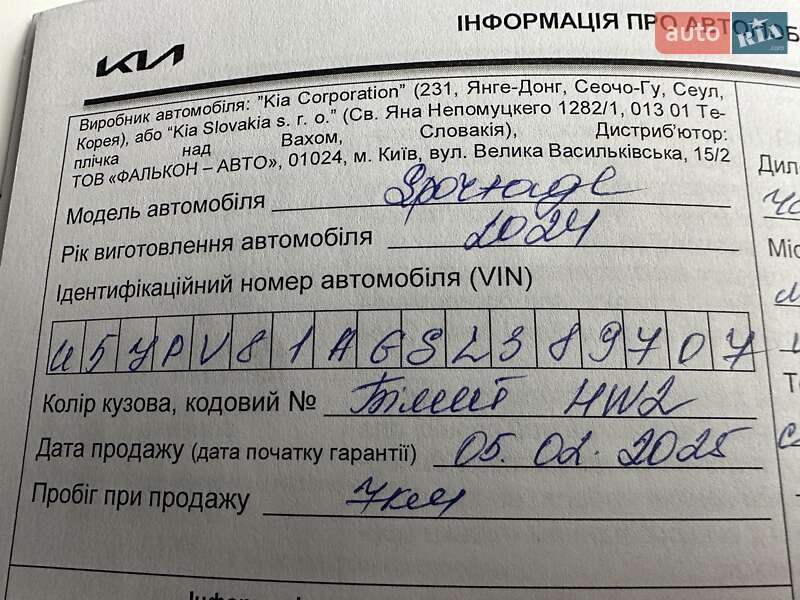 ІНФОРМАЦІЯ ПРО АВТОМОБ
auto RIA .com
KIA
Виробник автомобіля: "Kia Corporation" (231, Янге-Донг, Сеочо-Гу, Сеул,
Корея), або "Kia Slovakia s. r. o." (Св. Яна Непомуцкего 1282/1, 013 01 Те-
плічка над Вахом, Словакія), Дистриб'ютор:
ТОВ «ФАЛЬКОН – АВТО», 01024, м. Київ, вул. Велика Васильківська, 15/2
Модель автомобіля Sportage
Рік виготовлення автомобіля 2024
Ідентифікаційний номер автомобіля (VIN)
U5YPV81AGSL389707
Колір кузова, кодовий № Білий HW2
Дата продажу (дата початку гарантії) 05.02.2025
Пробіг при продажу 7км
Дил
Міс
Те